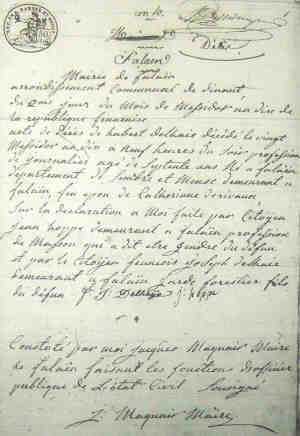 Décès
falaen
Mairie de falaën
arrondissement Communal de dinant
du jour du Mois de Messidor an dix de
la république francaise
acte de Décès de hubert Delhaie décédé le vingt
Messidor an dix a neuf heures du Soir profession
de Journalier agé de Septente ans Né a falaën
département de Sambre et Meuse demeurant a
falaën, feu epou de Catherinne
Sur la declaration a Moi faite par Citoyen
Jean hoppe demeurant a falaën profession
de Masson que a dit etre Gendre du defun
et par le Citoyen françois Joseph delhaie
demeurant a falaën Garde forestier fils
du defun
Constaté par moi Jacques Magnair Maire
de falaën faisant les fonction d'officier
publique de L'état Civil Soussigné
J. Magnair Maire